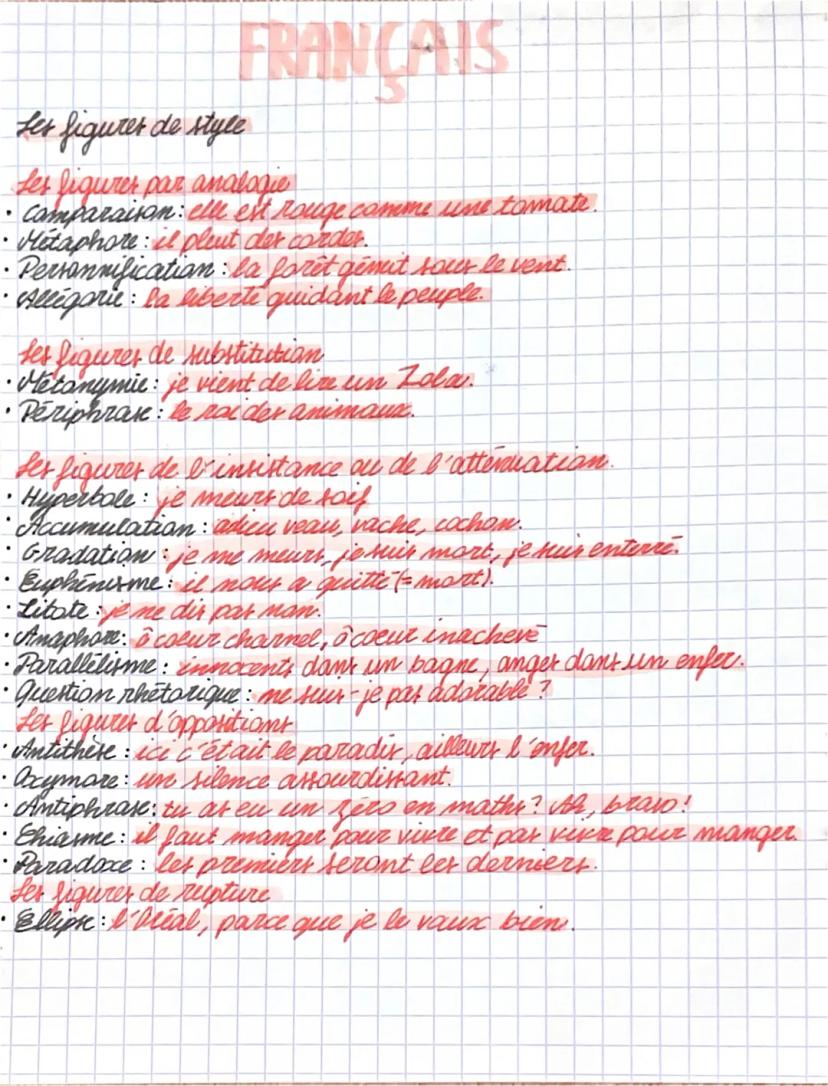 FRANÇAIS
Les figures de style
Les figures par analogie
• Comparaison : elle est rouge comme une tomate.
• Métaphore : il pleut des cordes.
• Personnification : la forêt gémit sous le vent.
• Allégorie : la liberté guidant le peuple.
Les figures de substitution
• Métonymie : je vient de lire un Zola.
• Périphrase : le roi des animaux.
Les figures de l'insistance ou de l'atténuation.
• Hyperbole : je meurs de soif
• Accumulation : adieu veau, vache, cochon.
• Gradation : je me meurs, je suis mort, je suis enterré.
• Euphémisme : il nous a quitté (= mort).
• Litote : je ne dis pas non.
• Anaphore : ô coeur charnel, ô coeur inachevé
• Parallélisme : innocents dans un bagne, anges dans un enfer.
• Question rhétorique : ne suis-je pas adorable ?
Les figures d'oppositions
• Antithèse : ici c'était le paradis, ailleurs l'enfer.
• Oxymore : un silence assourdissant.
• Antiphrase : tu as eu un zéro en maths ? Ah, bravo !
• Chiasme : il faut manger pour vivre et pas vivre pour manger.
• Paradoxe : les premiers seront les derniers.
Les figures de rupture
• Ellipse : l'Oréal, parce que je le vaux bien.